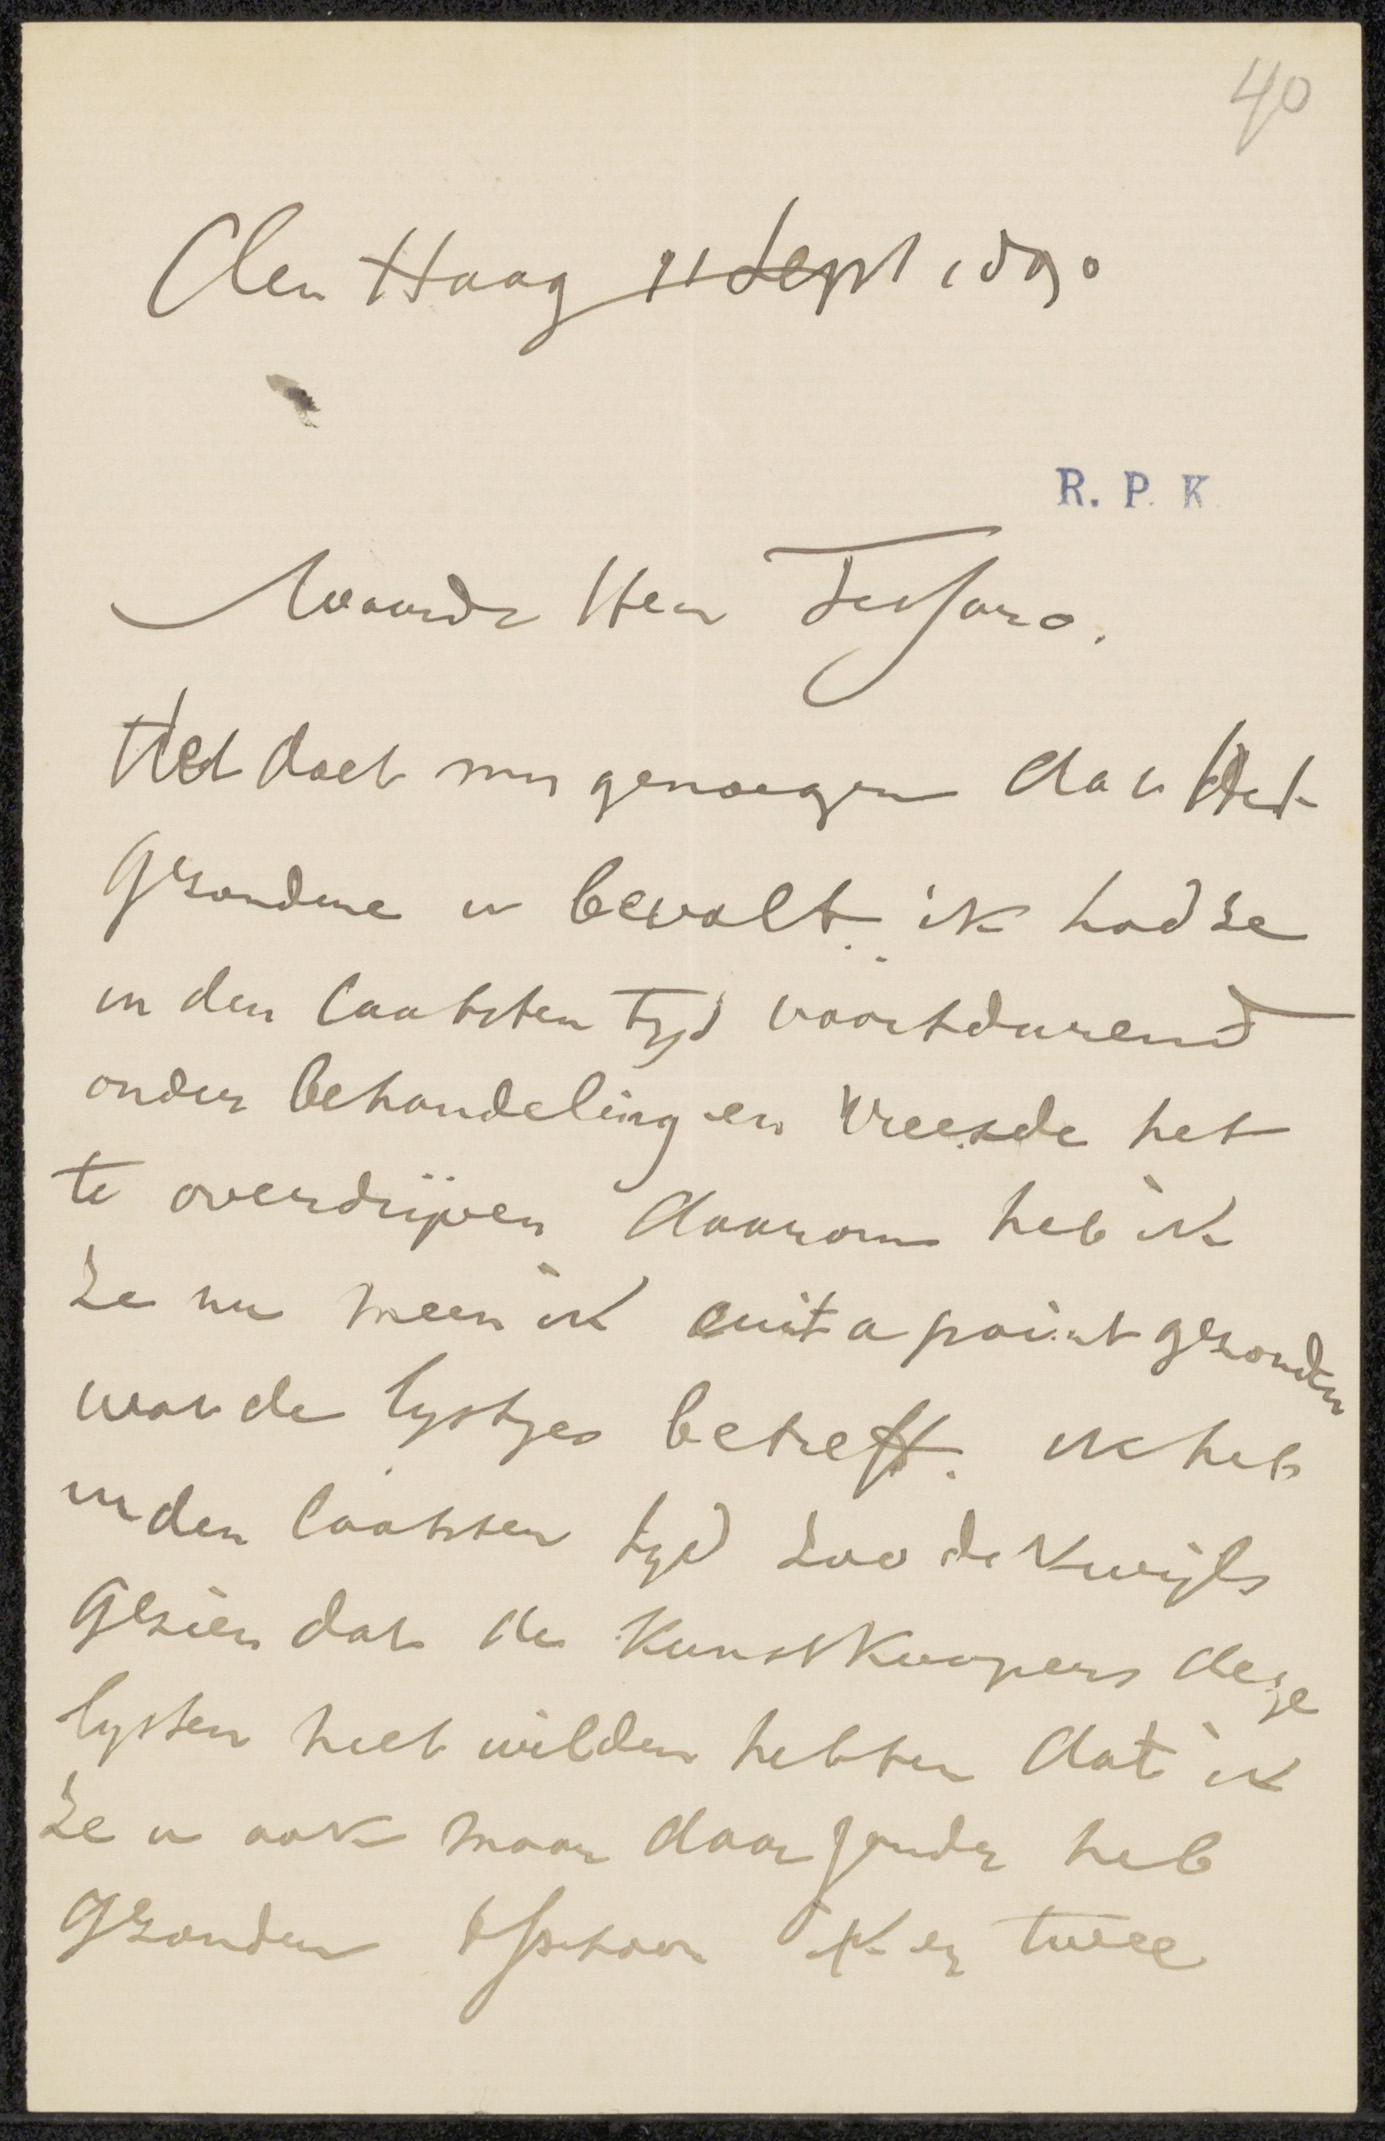 40
Den Haag 11 Sept 1890
R. P. K.
Waarde Heer Tessaro.
Het doet mij genoegen dat Het
gezondene u bevalt. ik had ze
in den laatsten tyd voortdurend
onder behandeling en vreesde het
te overdrijven daarom heb ik
ze nu meen ik cuit a point gezonden
wat de lystjes betreft. ik heb
in den laatsten tyd zoo dikwijls
gezien dat de Kunstkoopers deze
lysten niet wilden hebben dat ik
ze u ook maar daarzonder heb
gezonden ofschoon ik er twee